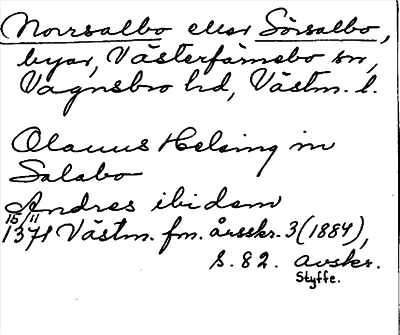 Norrsalbo eller Sörsalbo,
byar, Västerfärnebo sn,
Vagnsbro hd, Västm. l.
Olauus Helsing in
Salabo
Andres ibidem
15/11
1371 Västm. fm. årsskr. 3 (1884),
s. 82. avskr.
Styffe.